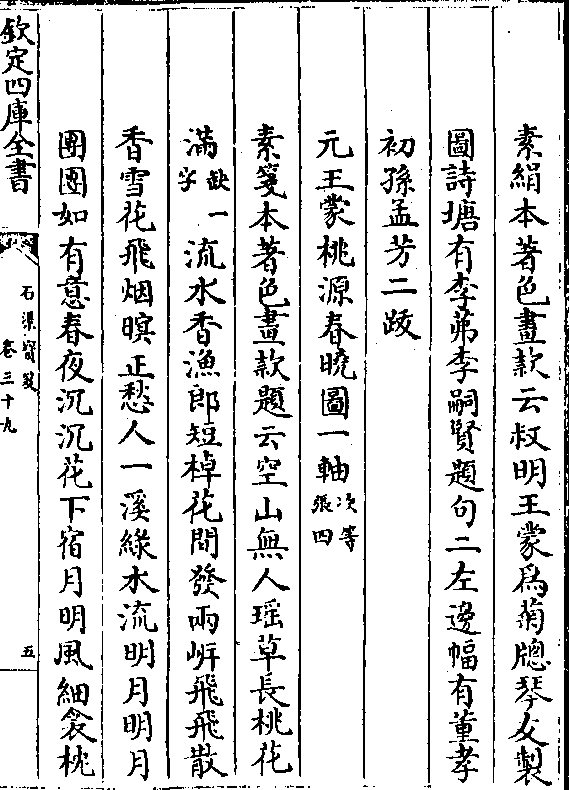 素絹本著色畫款云叔明王蒙爲菊牕琴友製
圖詩塘有李苐李嗣賢題句二左邊幅有董孝
初孫孟芳二跋
元王蒙桃源春曉圖一軸次等張四
素箋本著色畫款題云空山無人瑶草長桃花
滿缺字一流水香漁郎短棹花間發兩岍飛飛散
香雪花飛烟暝正愁人一溪綠水流明月明月
團團如有意春夜沉沉花下宿月明風細衾枕
欽定四庫全書
石渠寳笈
卷三十九
五